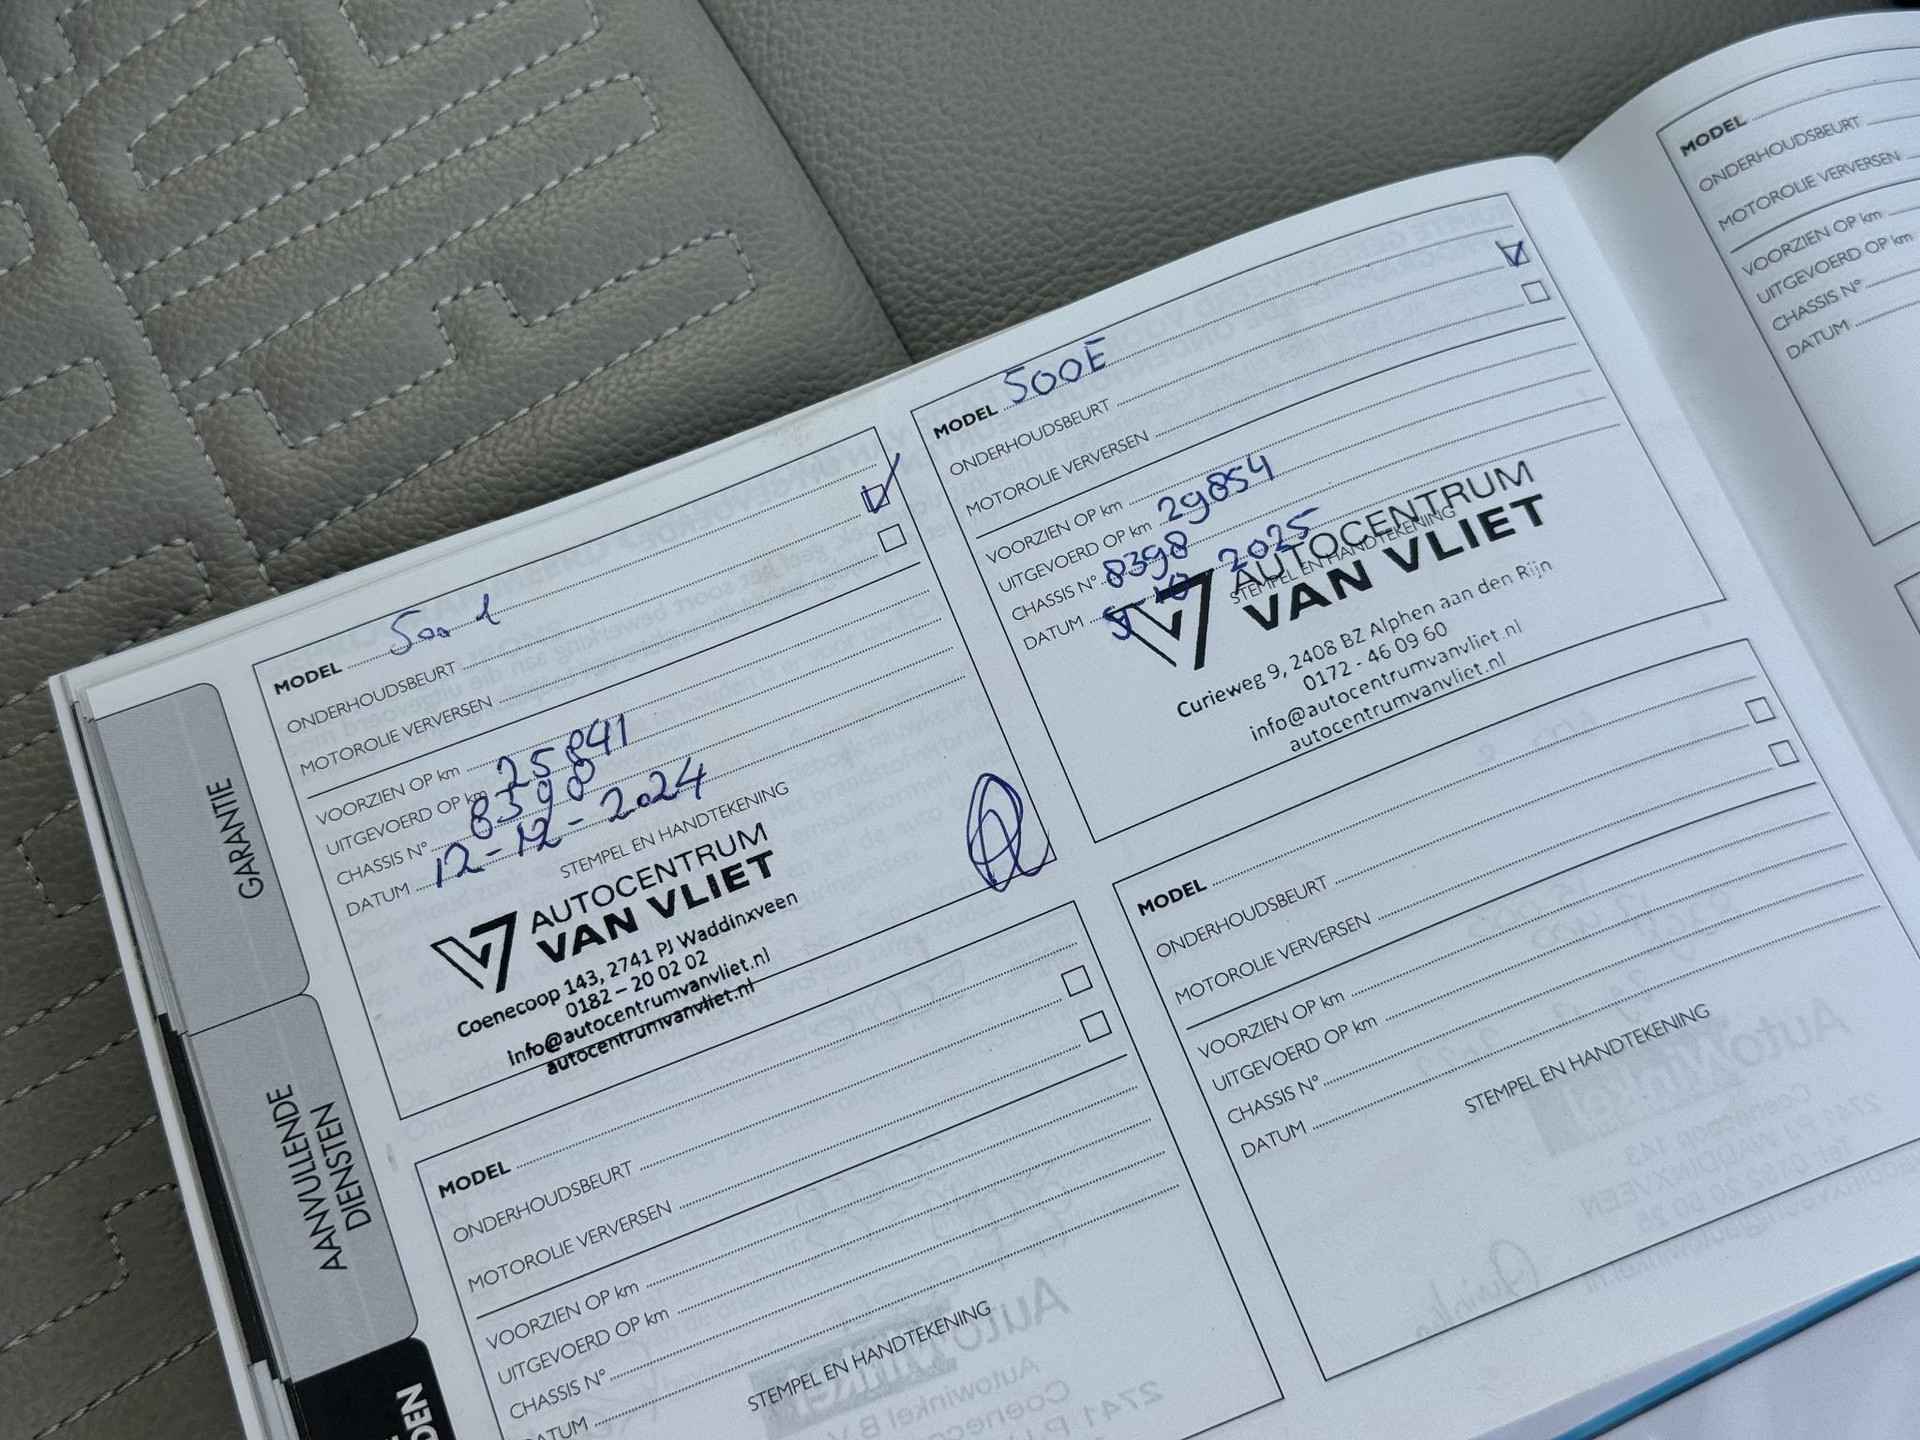 GARANTIE
AANVULLENDE
DIENSTEN
MODEL
ONDERHOUDSBEURT
MOTOROLIE VERVERSEN
VOORZIEN OP km
UITGEVOERD OP km 25841
CHASSIS N° 8398
DATUM 12-12-2024
STEMPEL EN HANDTEKENING
AUTOCENTRUM
VAN VLIET
Coenecoop 143, 2741 PJ Waddinxveen
0182 – 20 02 02
info@autocentrumvanvliet.nl
autocentrumvanvliet.nl
MODEL
ONDERHOUDSBEURT
MOTOROLIE VERVERSEN
VOORZIEN OP km
UITGEVOERD OP km
CHASSIS N°
DATUM
STEMPEL EN HANDTEKENING
MODEL 500E
ONDERHOUDSBEURT
MOTOROLIE VERVERSEN
VOORZIEN OP km
UITGEVOERD OP km 29854
CHASSIS N° 8398
DATUM 2025
STEMPEL EN HANDTEKENING
AUTOCENTRUM
VAN VLIET
Curieweg 9, 2408 BZ Alphen aan den Rijn
0172 - 46 09 60
info@autocentrumvanvliet.nl
autocentrumvanvliet.nl
MODEL
ONDERHOUDSBEURT
MOTOROLIE VERVERSEN
VOORZIEN OP km
UITGEVOERD OP km
CHASSIS N°
DATUM
STEMPEL EN HANDTEKENING
MODEL
ONDERHOUDSBEURT
MOTOROLIE VERVERSEN
VOORZIEN OP km
UITGEVOERD OP km
CHASSIS N°
DATUM